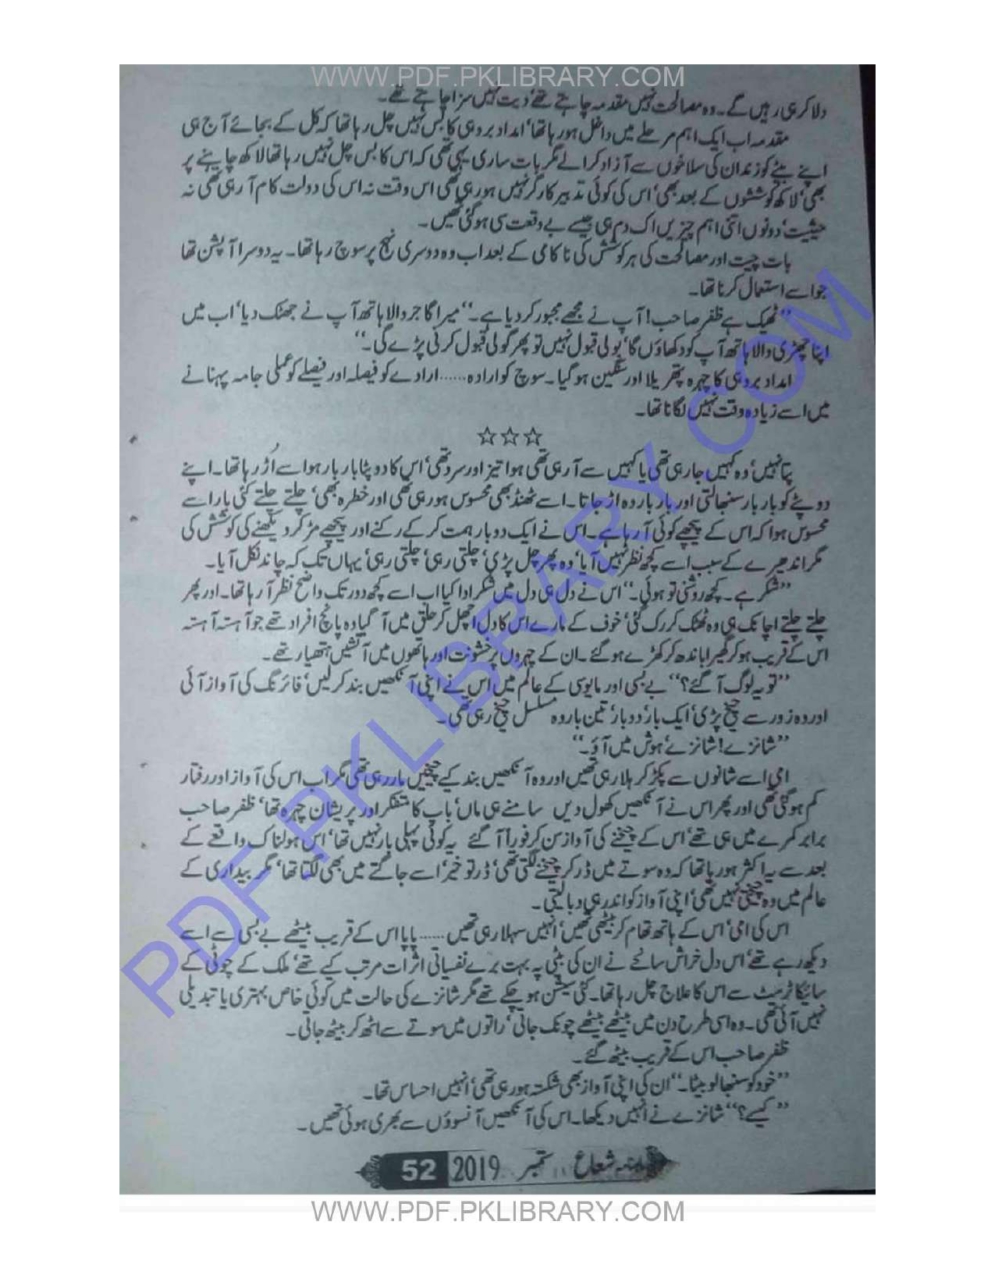 WWW.PDF.PKLIBRARY.COM
دلا کر ہی رہیں گے۔ وہ مصالحت نہیں مقدمہ چاہتے تھے' دیت نہیں سزا چاہتے تھے۔
مقدمہ اب ایک اہم مرحلے میں داخل ہو رہا تھا' امداد بردہی کا بس نہیں چل رہا تھا کہ کل کے بجائے آج ہی
اپنے بیٹے کو زندان کی سلاخوں سے آزاد کرا لے مگر بات ساری یہی تھی کہ اس کا بس چل نہیں رہا تھا لاکھ چاہنے پر
بھی' لاکھ کوششوں کے بعد بھی' اس کی کوئی تدبیر کارگر نہیں ہو رہی تھی اس وقت نہ اس کی دولت کام آ رہی تھی نہ
حیثیت' دونوں اتنی اہم چیزیں اک دم ہی جیسے بے وقعت سی ہو گئی تھیں۔
بات چیت اور مصالحت کی ہر کوشش کی ناکامی کے بعد اب وہ دوسری نہج پر سوچ رہا تھا۔ یہ دوسرا آپشن تھا
جو اسے استعمال کرنا تھا۔
''ٹھیک ہے ظفر صاحب! آپ نے مجھے مجبور کر دیا ہے۔'' میرا گاجر والا ہاتھ آپ نے جھٹک دیا' اب میں
اپنا چھڑی والا ہاتھ آپ کو دکھاؤں گا' بولی قبول نہیں تو پھر گولی قبول کرنی پڑے گی۔''
امداد بردہی کا چہرہ پتھریلا اور سنگین ہو گیا۔ سوچ کو ارادہ...... ارادے کو فیصلہ اور فیصلے کو عملی جامہ پہنانے
میں اسے زیادہ وقت نہیں لگانا تھا۔
☆☆☆
پتا نہیں' وہ کہیں جا رہی تھی یا کہیں سے آ رہی تھی ہوا تیز اور سرد تھی' اس کا دوپٹا بار بار ہوا سے اُڑ رہا تھا۔ اپنے
دوپٹے کو بار بار سنبھالتی اور بار بار وہ اڑ جاتا۔ اسے ٹھنڈ بھی محسوس ہو رہی تھی اور خطرہ بھی' چلتے چلتے کئی بار اسے
محسوس ہوا کہ اس کے پیچھے کوئی آ رہا ہے۔ اس نے ایک دو بار ہمت کر کے رکنے اور پیچھے مڑ کر دیکھنے کی کوشش کی
مگر اندھیرے کے سبب اسے کچھ نظر نہیں آیا' وہ پھر چل پڑی' چلتی رہی' چلتی رہی' یہاں تک کہ چاند نکل آیا۔
''شکر ہے۔ کچھ روشنی تو ہوئی۔'' اس نے دل ہی دل میں شکر ادا کیا اب اسے کچھ دور تک واضح نظر آ رہا تھا۔ اور پھر
چلتے چلتے اچانک ہی وہ ٹھٹک کر رک گئی' خوف کے مارے اس کا دل اچھل کر حلق میں آ گیا وہ پانچ افراد تھے جو آہستہ آہستہ
اس کے قریب ہو کر گھیرا باندھ کر کھڑے ہو گئے۔ ان کے چہروں پر خشونت اور ہاتھوں میں آتشیں ہتھیار تھے۔
''تو یہ لوگ آ گئے؟'' بے بسی اور مایوسی کے عالم میں اس نے اپنی آنکھیں بند کر لیں' فائرنگ کی آواز آئی
اور وہ زور سے چیخ پڑی' ایک بار' دو بار' تین بار وہ مسلسل چیخ رہی تھی۔
''شانزے! شانزے' ہوش میں آؤ۔''
امی اسے شانوں سے پکڑ کر ہلا رہی تھیں اور وہ آنکھیں بند کیے چیخیں مار رہی تھی مگر اب اس کی آواز اور رفتار
کم ہو گئی تھی اور پھر اس نے آنکھیں کھول دیں سامنے ہی ماں' باپ کا متفکر اور پریشان چہرہ تھا' ظفر صاحب
برابر کمرے میں ہی تھے' اس کے چیخنے کی آواز سن کر فوراً آ گئے یہ کوئی پہلی بار نہیں تھا' اس ہولناک واقعے کے
بعد سے یہ اکثر ہو رہا تھا کہ وہ سوتے میں ڈر کر چیخنے لگتی تھی' ڈر تو خیر' اسے جاگتے میں بھی لگتا تھا' مگر بیداری کے
عالم میں وہ چیختی نہیں تھی' اپنی آواز کو اندر ہی دبا لیتی۔
اس کی امی' اس کے ہاتھ تھام کر بیٹھی تھیں' انہیں سہلا رہی تھیں...... پاپا اس کے قریب بیٹھے بے بسی سے اسے
دیکھ رہے تھے' اس دل خراش سانحے نے ان کی بیٹی پہ بہت برے نفسیاتی اثرات مرتب کیے تھے' ملک کے چوٹی کے
سائیکاٹرسٹ سے اس کا علاج چل رہا تھا۔ کئی سیشن ہو چکے تھے مگر شانزے کی حالت میں کوئی خاص بہتری یا تبدیلی
نہیں آئی تھی۔ وہ اسی طرح دن میں بیٹھے بیٹھے چونک جاتی' راتوں میں سوتے سے اٹھ کر بیٹھ جاتی۔
ظفر صاحب اس کے قریب بیٹھ گئے۔
''خود کو سنبھالو بیٹا۔'' ان کی اپنی آواز بھی شکستہ ہو رہی تھی' انہیں احساس تھا۔
''کیسے؟'' شانزے نے انہیں دیکھا۔ اس کی آنکھیں آنسوؤں سے بھری ہوئی تھیں۔
ماہنامہ شعاع ستمبر 2019 52
PDF.PKLIBRARY.COM
WWW.PDF.PKLIBRARY.COM